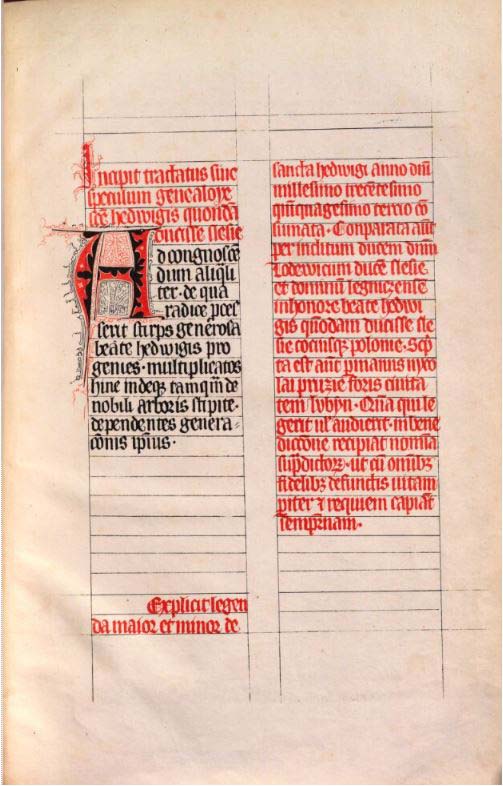 Incipit tractatus sive
speculum genealoye
sce hedwigis quonda
ducisse slesie
Ad congnosce
dum aliqu
ter · de qua
radice pces
serit stirps generosa
beate hedwigis pro
genies · multiplicatos
hinc indeq tamqm de
nobili arboris stipite ·
dependentes genera
cionis ipius ·
Explicit legen
da maior et minor de
sancta hedwigi anno dni
millesimo trecetesimo
quiquagesimo tercio co
sumata · Conparata aut
per inclitum ducem dnm
Lodewicum duce slesie
et dominu legniczense
in honore beate hedwi
gis quodam ducisse sle
sie tociusq polonie · Scp
ta est aut p manus nyco
lai pruzie foris civita
tem lubyn · Qma qui le
gerit ul audierit · in bene
dictone recipiat nomina
supdictor · ut cu omibz
fidelibz defunctis vitam
piter et requiem capiat
sempernam ·